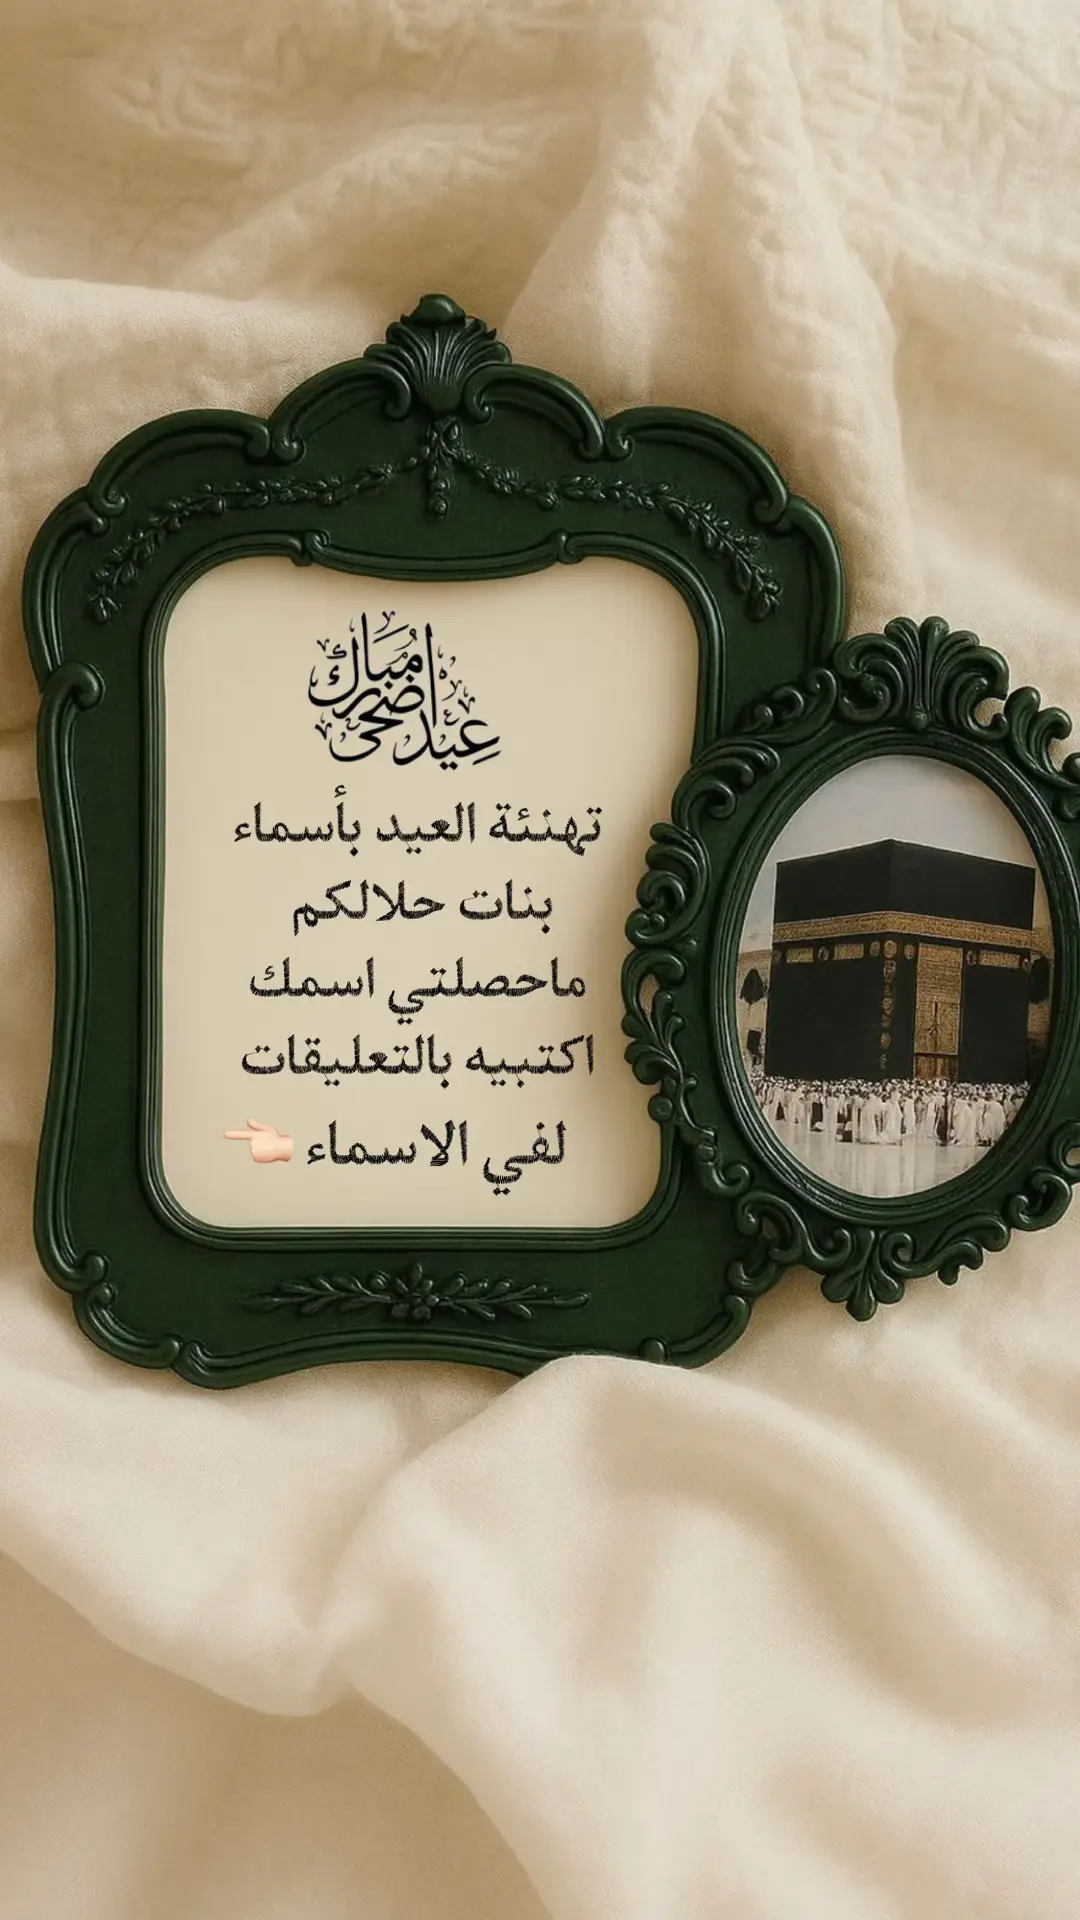 عيد أضحى مبارك
تهنئة العيد بأسماء
بنات حلالكم
ماحصلتي اسمك
اكتبيه بالتعليقات
لفي الاسماء 👈🏻